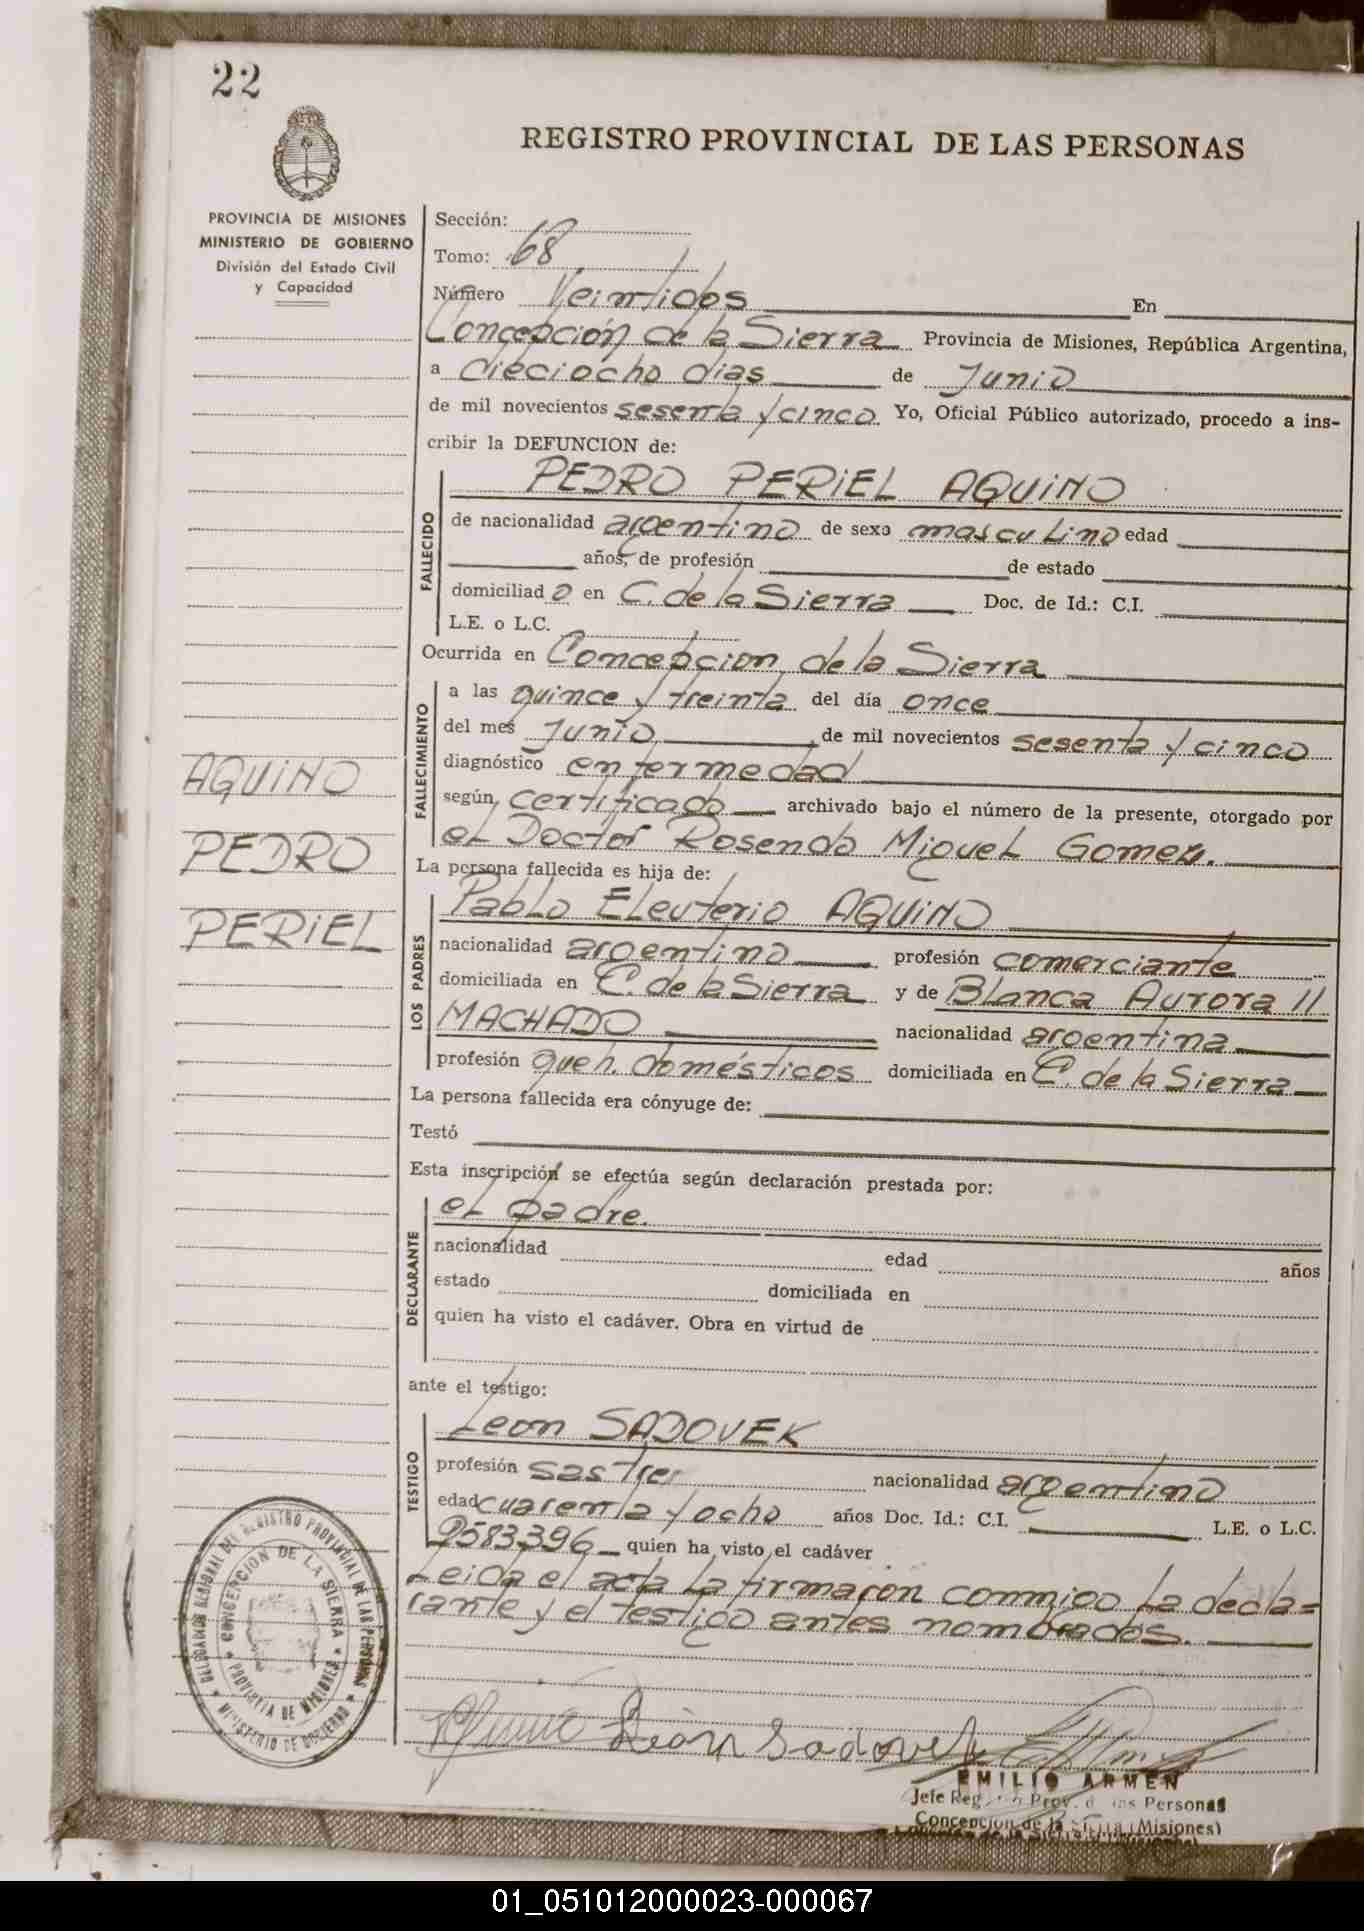 22
REGISTRO PROVINCIAL DE LAS PERSONAS
PROVINCIA DE MISIONES
MINISTERIO DE GOBIERNO
División del Estado Civil
y Capacidad
Sección:
Tomo: 68
Número Veintidos En
Concepción de la Sierra Provincia de Misiones, República Argentina,
a dieciocho dias de Junio
de mil novecientos sesenta y cinco Yo, Oficial Público autorizado, procedo a ins-
cribir la DEFUNCION de:
FALLECIDO
PEDRO PERIEL AQUINO
de nacionalidad argentino de sexo masculino edad
años, de profesión de estado
domiciliad o en C. de la Sierra Doc. de Id.: C.I.
L.E. o L.C.
Ocurrida en Concepcion de la Sierra
FALLECIMIENTO
a las quince y treinta del día once
del mes Junio, de mil novecientos sesenta y cinco
diagnóstico enfermedad
según certificado archivado bajo el número de la presente, otorgado por
el Doctor Rosendo Miguel Gomez.
AQUINO
PEDRO
PERIEL
La persona fallecida es hija de:
LOS PADRES
Pablo Eleuterio AQUINO
nacionalidad argentino profesión comerciante
domiciliada en C. de la Sierra y de Blanca Aurora //
MACHADO nacionalidad argentina
profesión queh. domésticos domiciliada en C. de la Sierra
La persona fallecida era cónyuge de:
Testó
Esta inscripción se efectúa según declaración prestada por:
DECLARANTE
el padre.
nacionalidad edad años
estado domiciliada en
quien ha visto el cadáver. Obra en virtud de
ante el testigo:
TESTIGO
Leon SADOVEK
profesión sastre nacionalidad argentino
edad cuarenta y ocho años Doc. Id.: C.I. L.E. o L.C.
9583396 quien ha visto el cadáver
Leida el acta la firmaron conmigo la decla=
rante y el testigo antes nombrados.
DELEGACION REGIONAL DEL REGISTRO PROVINCIAL DE LAS PERSONAS
MINISTERIO DE GOBIERNO
CONCEPCION DE LA SIERRA
PROVINCIA DE MISIONES
León Sadovek
EMILIO ARMEN
Jefe Reg Prov. d las Personas
Concepción de la Sierra (Misiones)
01_051012000023-000067